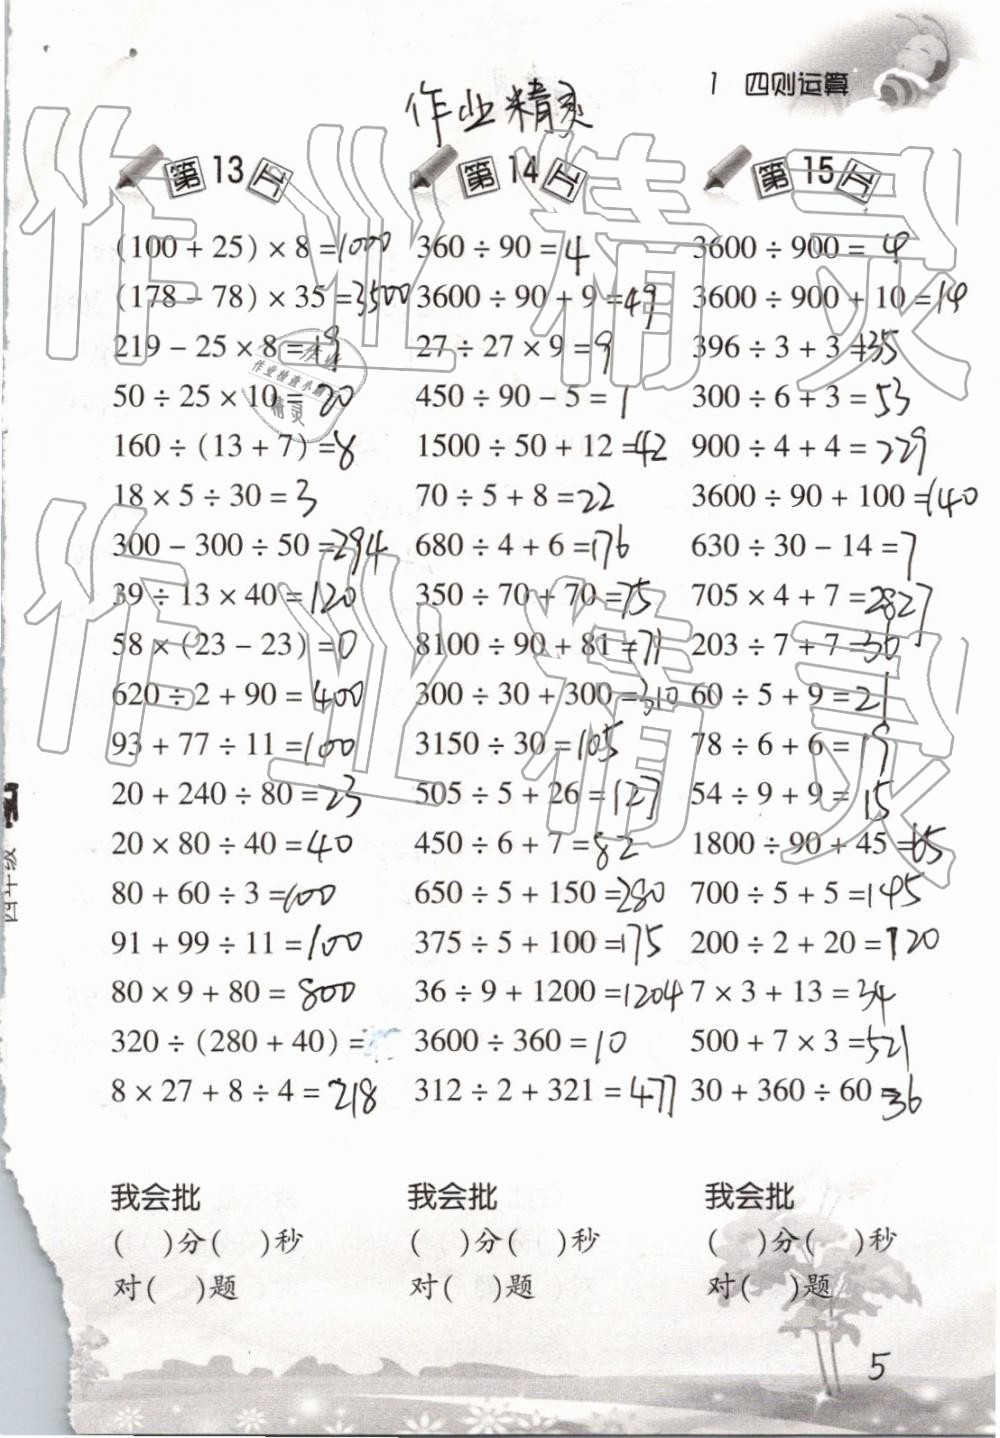 1 四则运算
作业精灵
第13天
(100 + 25) × 8 =1000
(178 - 78) × 35 =3500
219 - 25 × 8 =19
50 ÷ 25 × 10 = 20
160 ÷ (13 + 7) =8
18 × 5 ÷ 30 = 3
300 - 300 ÷ 50 =294
39 ÷ 13 × 40 =120
58 × (23 - 23) =0
620 ÷ 2 + 90 = 400
93 + 77 ÷ 11 =100
20 + 240 ÷ 80 = 23
20 × 80 ÷ 40 =40
80 + 60 ÷ 3 =100
91 + 99 ÷ 11 =100
80 × 9 + 80 = 800
320 ÷ (280 + 40) =
8 × 27 + 8 ÷ 4 = 218
我会批
( )分( )秒
对( )题
第14天
360 ÷ 90 = 4
3600 ÷ 90 + 9 =49
27 ÷ 27 × 9 = 9
450 ÷ 90 - 5 = 1
1500 ÷ 50 + 12 =42
70 ÷ 5 + 8 =22
680 ÷ 4 + 6 =176
350 ÷ 70 + 70 =75
8100 ÷ 90 + 81 =171
300 ÷ 30 + 300 =310
3150 ÷ 30 =105
505 ÷ 5 + 26 = 127
450 ÷ 6 + 7 = 82
650 ÷ 5 + 150 =280
375 ÷ 5 + 100 =175
36 ÷ 9 + 1200 =1204
3600 ÷ 360 = 10
312 ÷ 2 + 321 = 477
我会批
( )分( )秒
对( )题
第15天
3600 ÷ 900 = 4
3600 ÷ 900 + 10 =14
396 ÷ 3 + 3 =135
300 ÷ 6 + 3 = 53
900 ÷ 4 + 4 = 229
3600 ÷ 90 + 100 =140
630 ÷ 30 - 14 = 7
705 × 4 + 7 =2827
203 ÷ 7 + 7 =36
60 ÷ 5 + 9 = 21
78 ÷ 6 + 6 = 19
54 ÷ 9 + 9 = 15
1800 ÷ 90 + 45 =65
700 ÷ 5 + 5 =145
200 ÷ 2 + 20 =120
7 × 3 + 13 = 34
500 + 7 × 3 =521
30 + 360 ÷ 60 =36
我会批
( )分( )秒
对( )题
5
作业精灵
作业精灵
作业
作业检查小
精灵